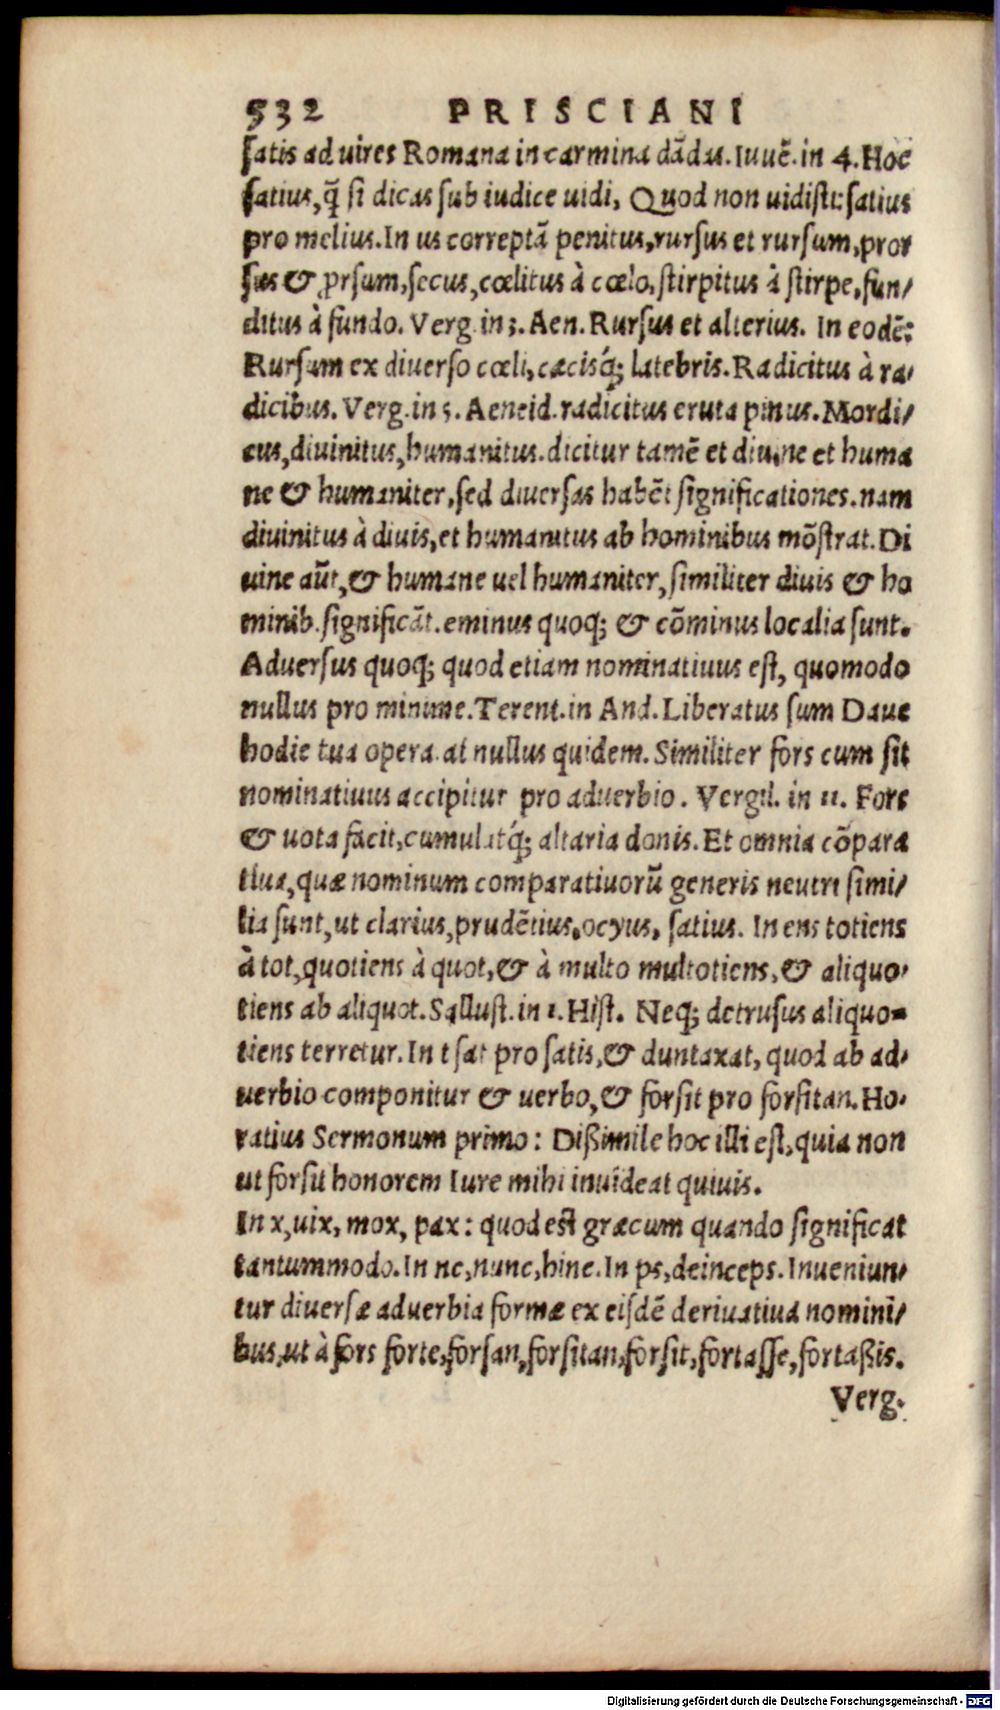 532 PRISCIANI
ſatis ad uires Romana in carmina dādas. Iuuē. in 4. Hoc
ſatius, q̄ ſi dicas ſub iudice uidi, Quod non uidiſti: ſatius
pro melius. In us correptā penitus, rurſus et rurſum, pror
ſus & ꝓrſum, ſecus, cœlitus à cœlo, ſtirpitus à ſtirpe, fun/
ditus à fundo. Verg. in 3. Aen. Rurſus et alterius. In eodē:
Rurſum ex diuerſo cœli, cæcisq́; latebris. Radicitus à ra/
dicibus. Verg. in 5. Aeneid. radicitus eruta pinus. Mordi/
cus, diuinitus, humanitus. dicitur tamē et diuine et huma
ne & humaniter, ſed diuerſas habēt ſignificationes. nam
diuinitus à diuis, et humanitus ab hominibus mōſtrat. Di
uine aūt, & humane uel humaniter, ſimiliter diuis & ho
minib. ſignificāt. eminus quoq; & cōminus localia ſunt.
Aduerſus quoq; quod etiam nominatiuus eſt, quomodo
nullus pro minime. Terent. in And. Liberatus ſum Daue
hodie tua opera. at nullus quidem. Similiter fors cum ſit
nominatiuus accipitur pro aduerbio. Vergil. in 11. Fors
& uota facit, cumulatq́; altaria donis. Et omnia cōpara
tiua, quæ nominum comparatiuorū generis neutri ſimi/
lia ſunt, ut clarius, prudētius, ocyus, ſatius. In ens totiens
à tot, quotiens à quot, & à multo multotiens, & aliquo/
tiens ab aliquot. Salluſt. in 1. Hiſt. Neq; detruſus aliquo-
tiens terretur. In t ſat pro ſatis, & duntaxat, quod ab ad/
uerbio componitur & uerbo, & forſit pro forſitan. Ho/
ratius Sermonum primo: Dißimile hoc illi eſt, quia non
ut forſit honorem Iure mihi inuideat quiuis.
In x, uix, mox, pax: quod eſt græcum quando ſignificat
tantummodo. In nc, nunc, hinc. In ps, deinceps. Inueniun/
tur diuerſæ aduerbia formæ ex eiſdē deriuatiua nomini/
bus, ut à fors forte, forſan, forſitan, forſit, fortaſſe, fortaßis.
Verg.
Digitalisierung gefördert durch die Deutsche Forschungsgemeinschaft - DFG